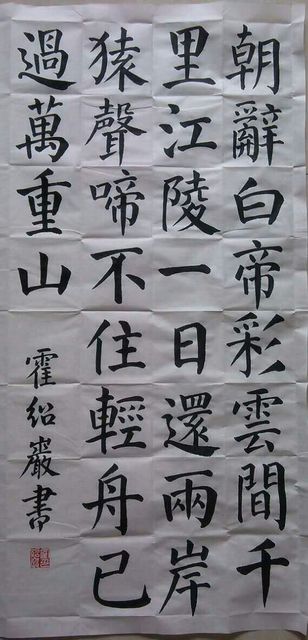 朝辭白帝彩雲間千
里江陵一日還兩岸
猿聲啼不住輕舟已
過萬重山
霍紹巖書